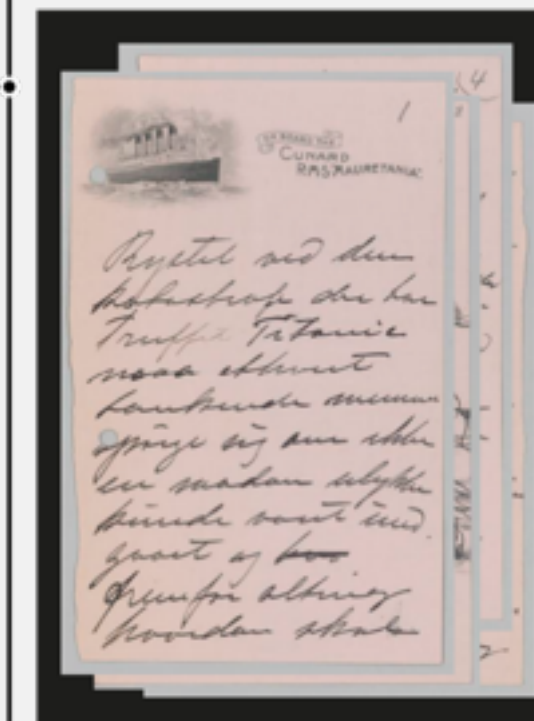 1
ON BOARD THE
CUNARD
R.M.S. "MAURETANIA".
Rystet ved den
katastrofe der har
truffet Titanic
maa ethvert
tænkende menneske
spörge sig om ikke
en saadan ulykke
kunde vært und
gaaet og
fremfor alting
hvordan skal
4